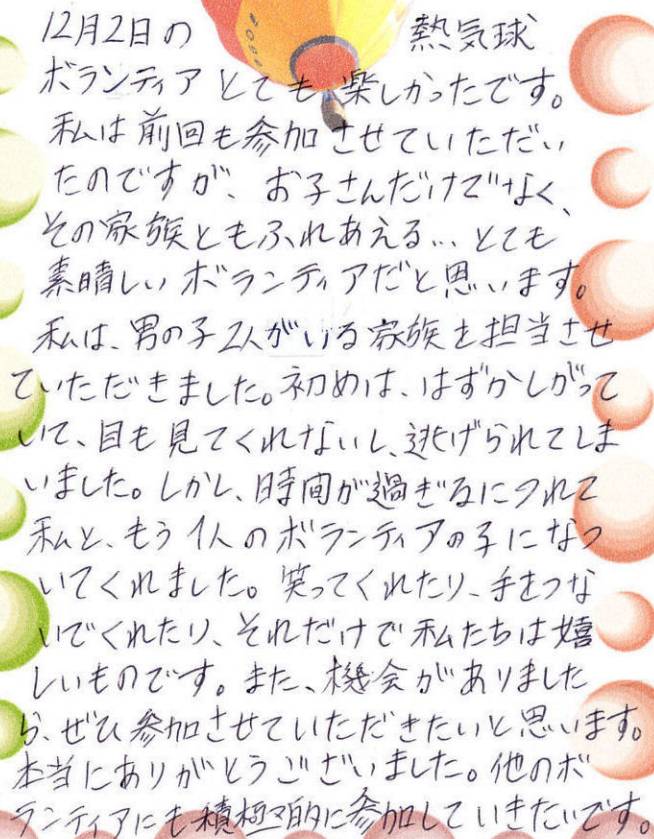 12月2日の 熱気球
ボランティアとても楽しかったです。
私は前回も参加させていただい
たのですが、お子さんだけでなく、
その家族ともふれあえる…とても
素晴しいボランティアだと思います。
私は、男の子2人がいる家族を担当させ
ていただきました。初めは、はずかしがって
いて、目も見てくれないし、逃げられてしま
いました。しかし、時間が過ぎるにつれて
私と、もう1人のボランティアの子になつ
いてくれました。笑ってくれたり、手をつな
いでくれたり、それだけで私たちは嬉
しいものです。また、機会がありました
ら、ぜひ参加させていただきたいと思います。
本当にありがとうございました。他のボ
ランティアにも積極的に参加していきたいです。